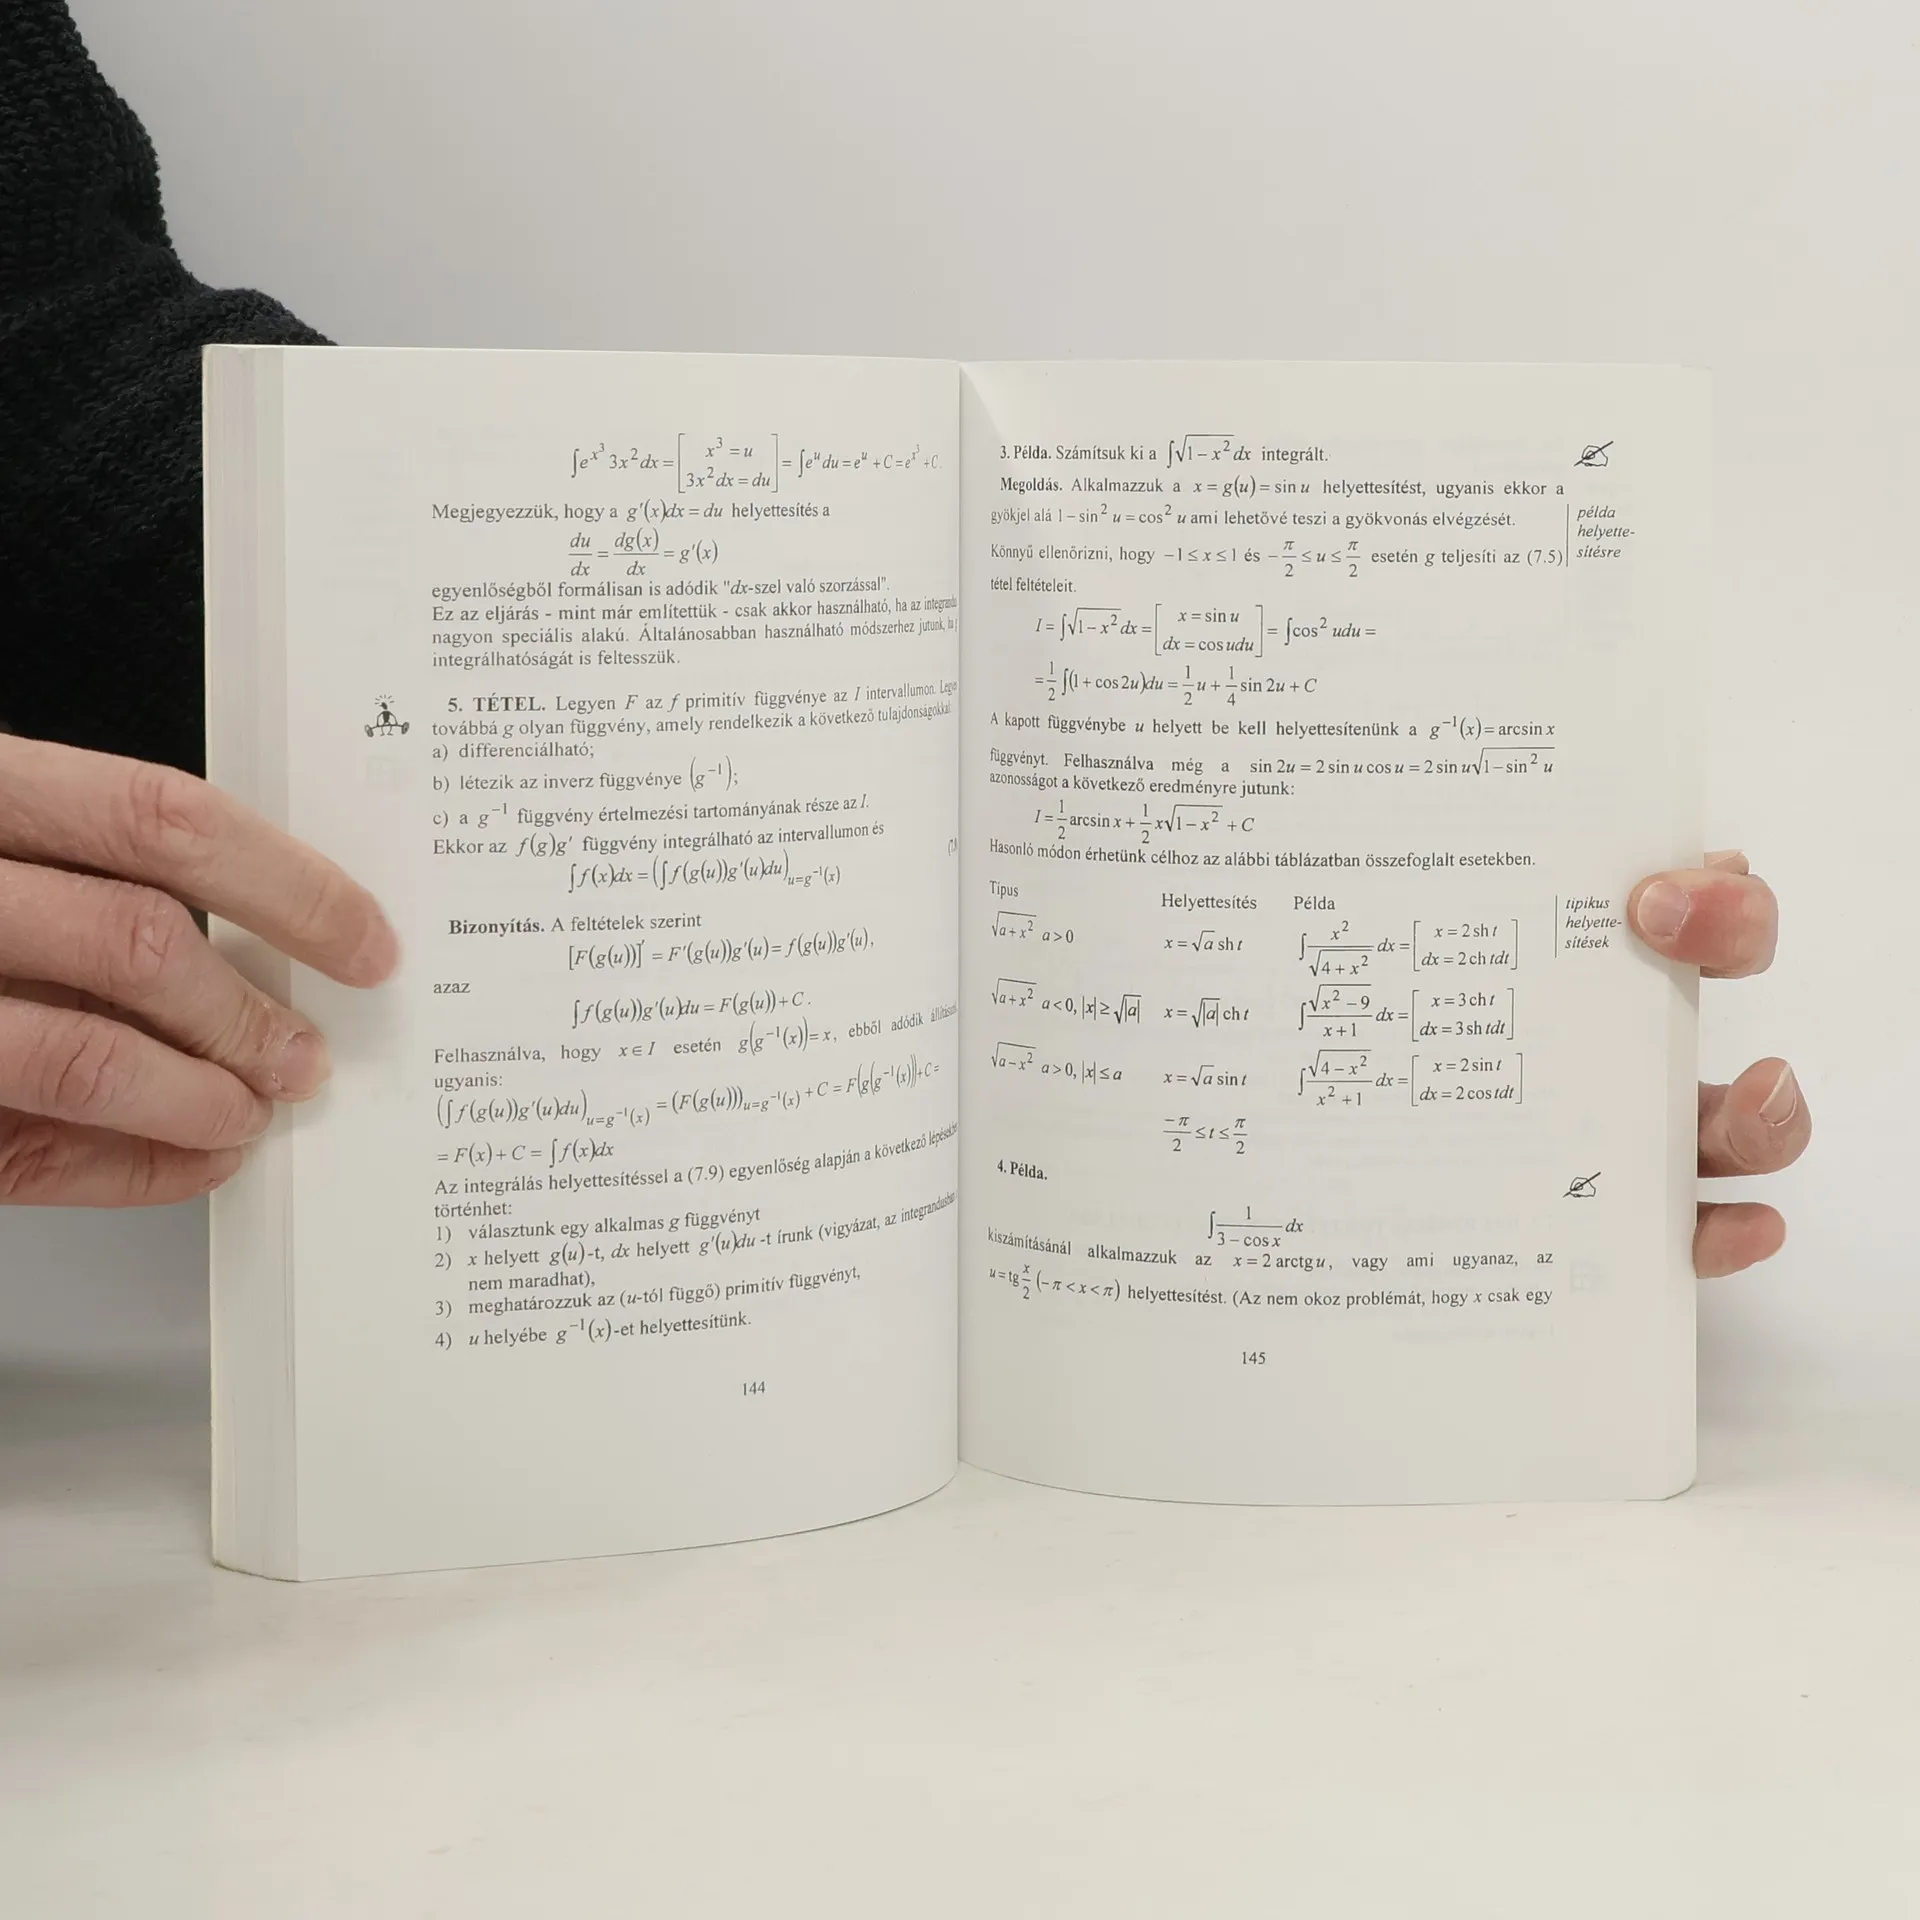 ∫e^{x³} 3x² dx = [x³ = u; 3x² dx = du] = ∫e^u du = e^u + C = e^{x³} + C.
Megjegyezzük, hogy a g′(x)dx = du helyettesítés a
du/dx = dg(x)/dx = g′(x)
egyenlőségből formálisan is adódik "dx-szel való szorzással".
Ez az eljárás - mint már említettük - csak akkor használható, ha az
nagyon speciális alakú. Általánosabban használható módszerhez jutunk, ha
integrálhatóságát is feltesszük.
5. TÉTEL. Legyen F az f primitív függvénye az I intervallumon. Legyen
továbbá g olyan függvény, amely rendelkezik a következő tulajdonságokkal:
a) differenciálható;
b) létezik az inverz függvénye (g⁻¹);
c) a g⁻¹ függvény értelmezési tartományának része az I.
Ekkor az f(g)g′ függvény integrálható az intervallumon és
∫f(x)dx = (∫f(g(u))g′(u)du)_{u=g⁻¹(x)}
Bizonyítás. A feltételek szerint
[F(g(u))]′ = F′(g(u))g′(u) = f(g(u))g′(u),
azaz
∫f(g(u))g′(u)du = F(g(u)) + C.
Felhasználva, hogy x∈I esetén g(g⁻¹(x)) = x, ebből adódik
ugyanis:
(∫f(g(u))g′(u)du)_{u=g⁻¹(x)} = (F(g(u)))_{u=g⁻¹(x)} + C = F(g(g⁻¹(x))) + C =
= F(x) + C = ∫f(x)dx
Az integrálás helyettesítéssel a (7.9) egyenlőség alapján a következő
történhet:
1) választunk egy alkalmas g függvényt
2) x helyett g(u)-t, dx helyett g′(u)du -t írunk (vigyázat, az integrandusban
nem maradhat),
3) meghatározzuk az (u-tól függő) primitív függvényt,
4) u helyébe g⁻¹(x)-et helyettesítünk.
144
3. Példa. Számítsuk ki a ∫√(1−x²) dx integrált.
Megoldás. Alkalmazzuk a x = g(u) = sin u helyettesítést, ugyanis ekkor a
gyökjel alá 1 − sin² u = cos² u ami lehetővé teszi a gyökvonás elvégzését.
Könnyű ellenőrizni, hogy −1 ≤ x ≤ 1 és −π/2 ≤ u ≤ π/2 esetén g teljesíti az (7.5)
tétel feltételeit.
példa
helyette-
sítésre
I = ∫√(1−x²) dx = [x = sin u; dx = cos udu] = ∫cos² udu =
= 1/2 ∫(1 + cos 2u)du = 1/2 u + 1/4 sin 2u + C
A kapott függvénybe u helyett be kell helyettesítenünk a g⁻¹(x) = arcsin x
függvényt. Felhasználva még a sin 2u = 2 sin u cos u = 2 sin u√(1−sin² u)
azonosságot a következő eredményre jutunk:
I = 1/2 arcsin x + 1/2 x√(1−x²) + C
Hasonló módon érhetünk célhoz az alábbi táblázatban összefoglalt esetekben.
Típus Helyettesítés Példa
√(a+x²) a>0 x = √a sh t ∫ x²/√(4+x²) dx = [x = 2 sh t; dx = 2 ch tdt]
√(a+x²) a<0, |x| ≥ √|a| x = √|a| ch t ∫ √(x²−9)/(x+1) dx = [x = 3 ch t; dx = 3 sh tdt]
√(a−x²) a>0, |x| ≤ a x = √a sin t ∫ √(4−x²)/(x²+1) dx = [x = 2 sin t; dx = 2 cos tdt]
−π/2 ≤ t ≤ π/2
tipikus
helyette-
sítések
4. Példa.
∫ 1/(3 − cos x) dx
kiszámításánál alkalmazzuk az x = 2 arctg u, vagy ami ugyanaz, az
u = tg x/2 (−π < x < π) helyettesítést. (Az nem okoz problémát, hogy x csak egy
145